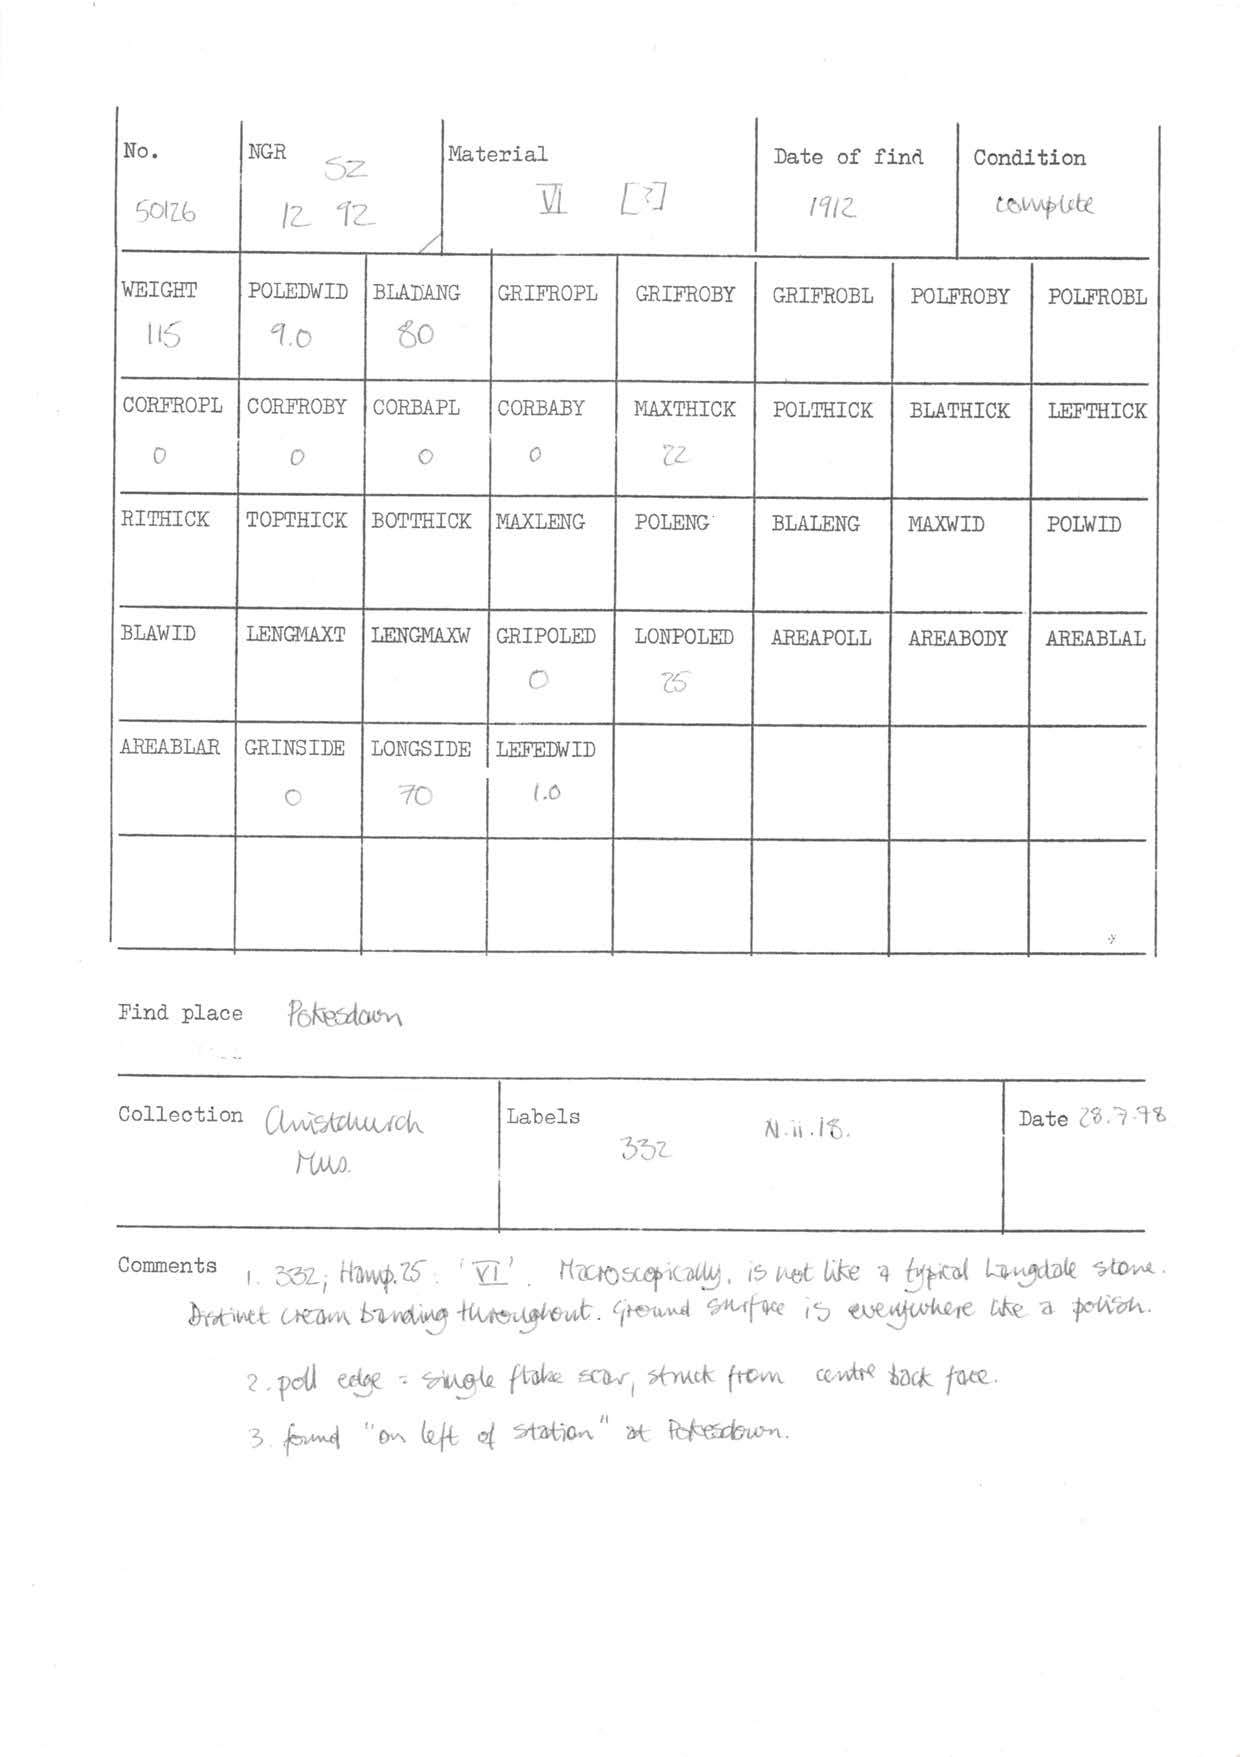 No. NGR Material Date of find Condition
SZ
50126 12 92 VI [?] 1912 complete
WEIGHT POLEDWID BLADANG GRIFROPL GRIFROBY GRIFROBL POLFROBY POLFROBL
115 9.0 80
CORFROPL CORFROBY CORBAPL CORBABY MAXTHICK POLTHICK BLATHICK LEFTHICK
0 0 0 0 22
RITHICK TOPTHICK BOTTHICK MAXLENG POLENG BLALENG MAXWID POLWID
BLAWID LENGMAXT LENGMAXW GRIPOLED LONPOLED AREAPOLL AREABODY AREABLAL
0 25
AREABLAR GRINSIDE LONGSIDE LEFEDWID
0 70 1.0
Find place Pokesdown
Collection Christchurch Mus. Labels 332 N.ii.18. Date 28.7.98
Comments 1. 332; Hamp.25: 'VI'. Macroscopically, is not like a typical Langdale stone.
Distinct cream banding throughout. Ground surface is everywhere like a polish.
2. poll edge = single flake scar, struck from centre back face.
3. found "on left of station" at Pokesdown.